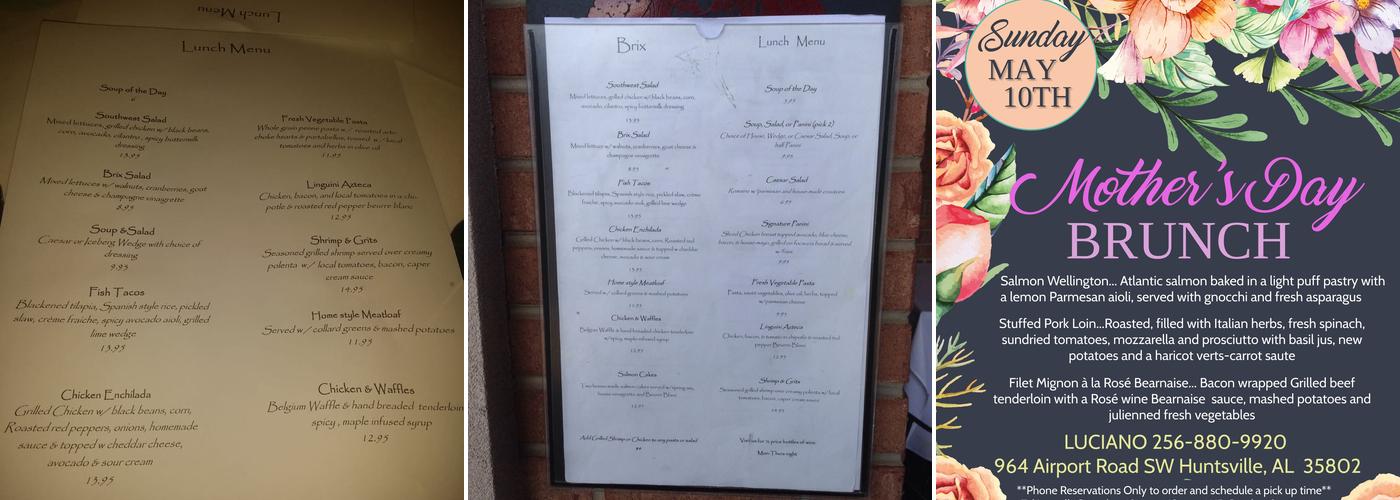 Lunch Menu
Lunch Menu
Soup of the Day
6
Southwest Salad
Mixed lettuces, grilled chicken w/ black beans,
corn, avocado, cilantro, spicy buttermilk
dressing
13.95
Brix Salad
Mixed lettuces w/ walnuts, cranberries, goat
cheese & champagne vinaigrette
8.95
Soup & Salad
Caesar or Iceberg Wedge with choice of
dressing
9.95
Fish Tacos
Blackened tilapia, Spanish style rice, pickled
slaw, crème fraiche, spicy avocado aioli, grilled
lime wedge
13.95
Chicken Enchilada
Grilled Chicken w/ black beans, corn,
Roasted red peppers, onions, homemade
sauce & topped w cheddar cheese,
avocado & sour cream
13.95
Fresh Vegetable Pasta
Whole grain penne pasta w/ roasted arti-
choke hearts & portabellas, tossed w/ local
tomatoes and herbs in olive oil
11.95
Linguini Azteca
Chicken, bacon, and local tomatoes in a chi-
potle & roasted red pepper beurre blanc
12.95
Shrimp & Grits
Seasoned grilled shrimp served over creamy
polenta w/ local tomatoes, bacon, caper
cream sauce
14.95
Home style Meatloaf
Served w/ collard greens & mashed potatoes
11.95
Chicken & Waffles
Belgium Waffle & hand breaded tenderloin
spicy, maple infused syrup
12.95
Brix
Southwest Salad
Mixed lettuces, grilled chicken w/ black beans, corn,
avocado, cilantro, spicy buttermilk dressing
13.95
Brix Salad
Mixed lettuce w/ walnuts, cranberries, goat cheese &
champagne vinaigrette
8.95
Fish Tacos
Blackened tilapia, Spanish style rice, pickled slaw, crème
fraiche, spicy avocado aioli, grilled lime wedge
13.95
Chicken Enchilada
Grilled Chicken w/ black beans, corn, Roasted red
peppers, onions, homemade sauce & topped w cheddar
cheese, avocado & sour cream
13.95
Home style Meatloaf
Served w/ collard greens & mashed potatoes
11.95
Chicken & Waffles
Belgian Waffle & hand breaded chicken tenderloin
w/ spicy, maple infused syrup
12.95
Salmon Cakes
Two house made salmon cakes served w/ spring mix,
house vinaigrette and Beurre Blanc
12.95
Add Grilled Shrimp or Chicken to any pasta or salad
Lunch Menu
Soup of the Day
5.95
Soup, Salad, or Panini (pick 2)
Choice of House, Wedge, or Caesar Salad, Soup, or
half Panini
9.95
Caesar Salad
Romaine w/ parmesan and house made croutons
6.95
Signature Panini
Sliced Chicken breast topped avocado, blue cheese,
bacon, & house mayo, grilled on focaccia bread & served
w/ fries
9.95
Fresh Vegetable Pasta
Pasta, sauté vegetables, olive oil, herbs, topped
w/ parmesan cheese
9.95
Linguini Azteca
Chicken, bacon, & tomato in chipotle & roasted red
pepper Beurre Blanc
12.95
Shrimp & Grits
Seasoned grilled shrimp over creamy polenta w/ local
tomatoes, bacon, caper cream sauce
14.95
for ½ price bottles of wine
Mon-Thurs night
Sunday
MAY
10TH
Mother's Day
BRUNCH
Salmon Wellington... Atlantic salmon baked in a light puff pastry with
a lemon Parmesan aioli, served with gnocchi and fresh asparagus
Stuffed Pork Loin...Roasted, filled with Italian herbs, fresh spinach,
sundried tomatoes, mozzarella and prosciutto with basil jus, new
potatoes and a haricot verts-carrot saute
Filet Mignon à la Rosé Bearnaise... Bacon wrapped Grilled beef
tenderloin with a Rosé wine Bearnaise sauce, mashed potatoes and
julienned fresh vegetables
LUCIANO 256-880-9920
964 Airport Road SW Huntsville, AL 35802
**Phone Reservations Only to order and schedule a pick up time**